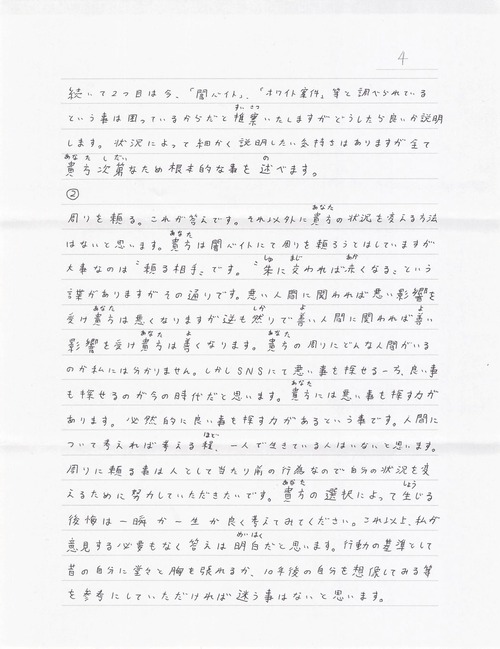 4
続いて2つ目は今、「闇バイト」、「ホワイト案件」等と調べられている
という事は困っているからだと推察いたしますがどうしたら良いか説明
します。状況によって細かく説明したい気持ちはありますが全て
貴方次第なため根本的な事を述べます。
②
周りを頼る。これが答えです。それ以外に貴方の状況を変える方法
はないと思います。貴方は闇バイトにて周りを頼ろうとはしていますが
大事なのは〝頼る相手〟です。〝朱に交われば赤くなる〟という
言葉がありますがその通りです。悪い人間に関われば悪い影響を
受け貴方は悪くなりますが逆も然りで善い人間に関われば善い
影響を受け貴方は善くなります。貴方の周りにどんな人間がいる
のか私には分かりません。しかしSNSにて悪い事を探せる一方、良い事
も探せるのが今の時代だと思います。貴方には悪い事を探す力が
あります。必然的に良い事を探す力があるという事です。人間に
ついて考えれば考える程、一人で生きている人はいないと思います。
周りに頼る事は人として当たり前の行為なので自分の状況を変
えるために努力していただきたいです。貴方の選択によって生じる
後悔は一瞬か一生か良く考えてみてください。これ以上、私が
意見する必要もなく答えは明白だと思います。行動の基準として
昔の自分に堂々と胸を張れるか、10年後の自分を想像してみる等
を参考にしていただければ迷う事はないと思います。